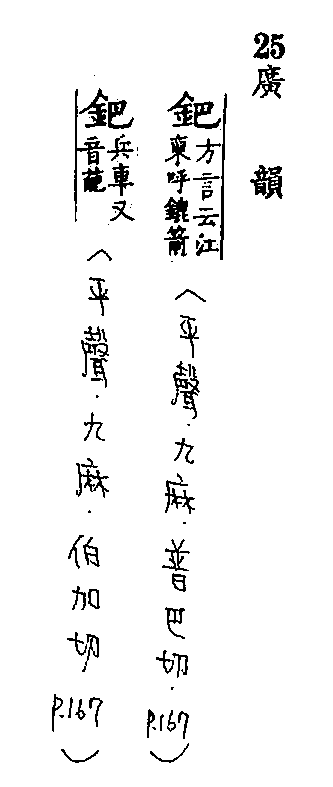 25 廣韻
鈀 方言云江東呼鎞箭 (平聲．九麻．普巴切．P.167)
鈀 兵車又音葩 (平聲．九麻．伯加切 P.167)